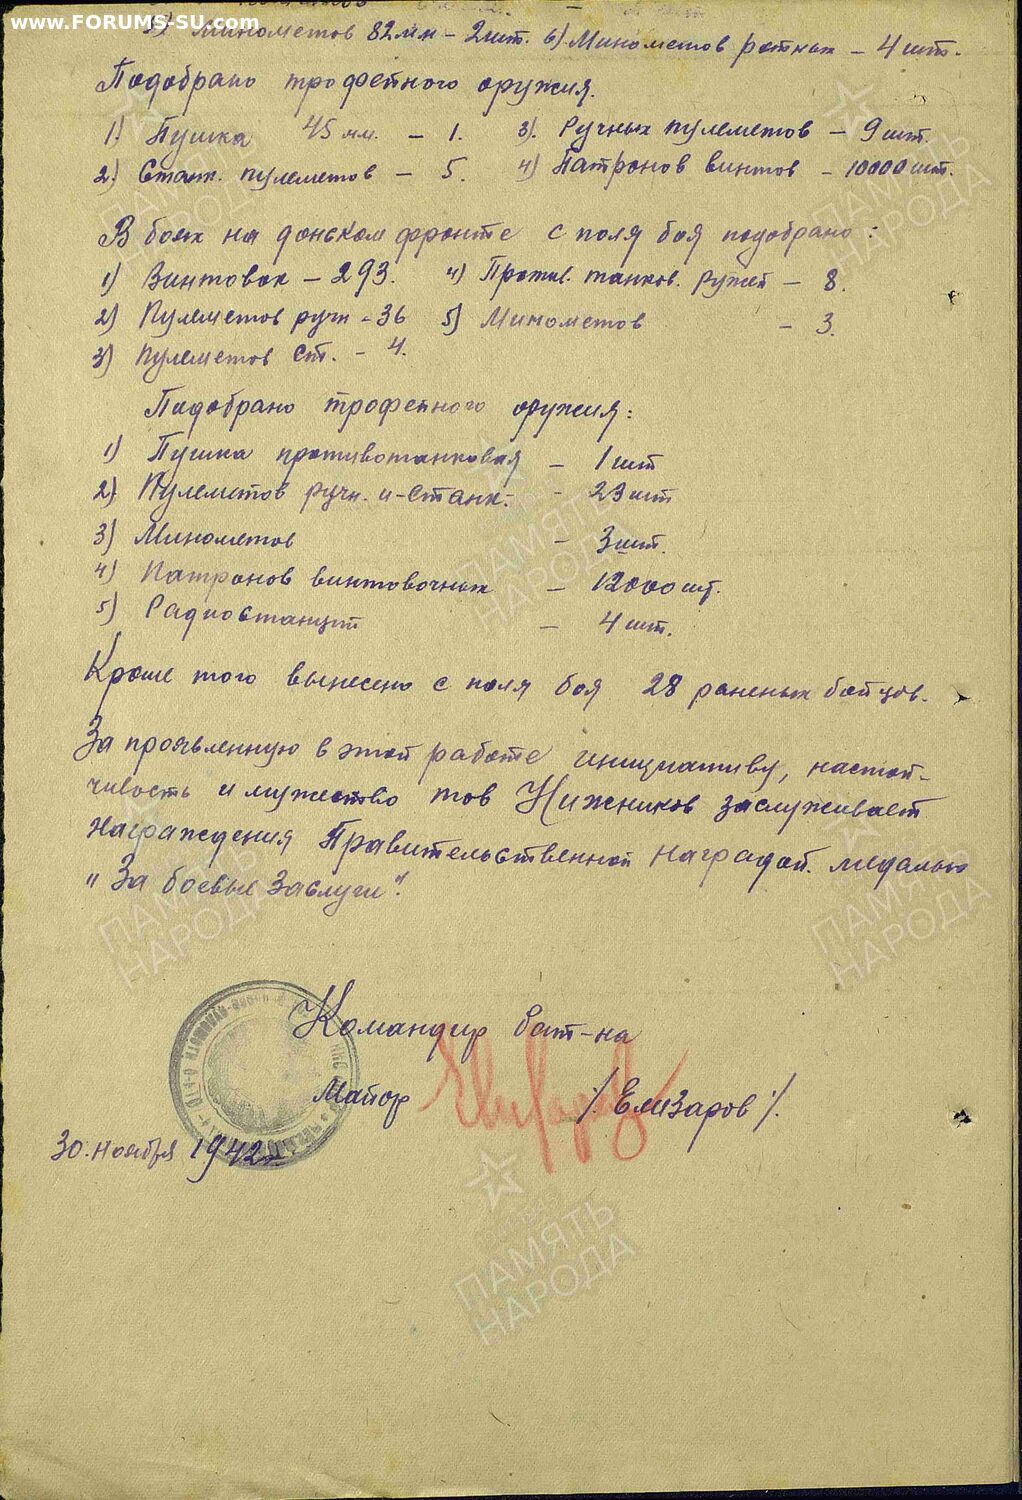 www.FORUMS-SU.com
5) Минометов 82 мм – 2 шт. 6) Минометов ротных – 4 шт.
Подобрано трофейного оружия.
1) Пушка 45 мм. – 1. 3) Ручных пулеметов – 9 шт.
2) Станк. пулеметов – 5. 4) Патронов винтов – 10000 шт.
В боях на донском фронте с поля боя подобрано:
1) Винтовок – 293. 4) Против. танков. ружей – 8.
2) Пулеметов ручн – 36 5) Минометов – 3.
3) Пулеметов ст. – 4.
Подобрано трофейного оружия:
1) Пушка противотанковая – 1 шт
2) Пулеметов ручн. и-станк. – 23 шт
3) Минометов – 3 шт.
4) Патронов винтовочных – 12000 шт.
5) Радиостанций – 4 шт.
Кроме того вынесено с поля боя 28 раненых бойцов.
За проявленную в этой работе инициативу, настой-
чивость и мужество тов Нижников заслуживает
награждения Правительственной наградой. медалью
„За боевые заслуги".
Командир бат-на
Майор /Елизаров/.
30. ноября 1942 г.
ПАМЯТЬ
НАРОДА
ПАМЯТЬ
НАРОДА
ПАМЯТЬ
НАРОДА
ПАМЯТЬ
НАРОДА
ПАМЯТЬ
НАРОДА
ПАМЯТЬ
НАРОДА